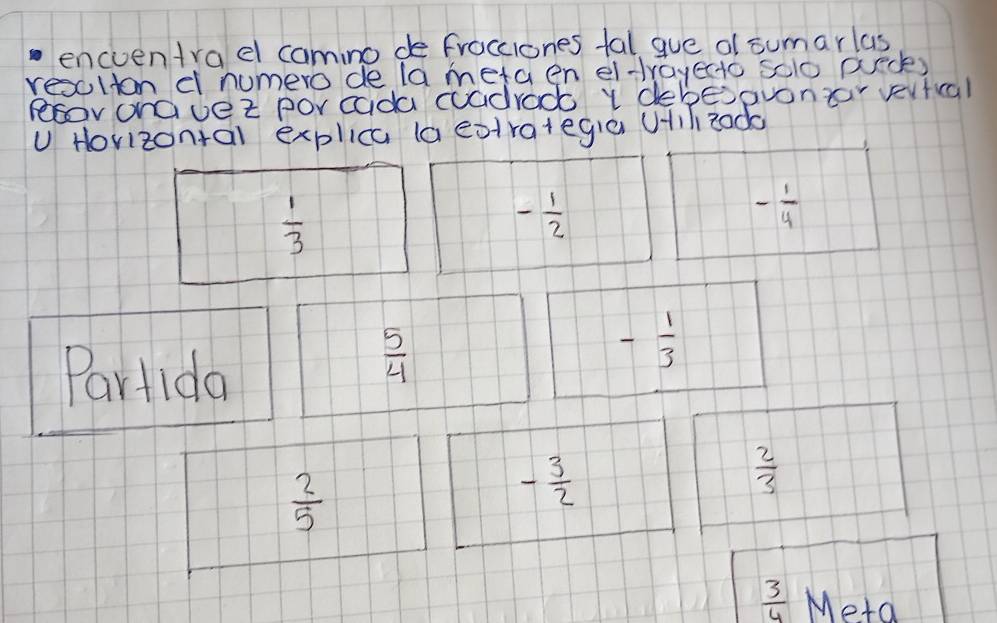 encuentra el camino de fracciones tal que al sumarlas
resultan el numero de la meta en el trayecto solo puedes
pasar una vez por cada cuadrado y debes avanzar vertical
U Horizontal explica la estrategia Utilizada
1/3 -1/2 -1/4
Partida 5/4 -1/3
2/5 -3/2 2/3
3/4 Meta